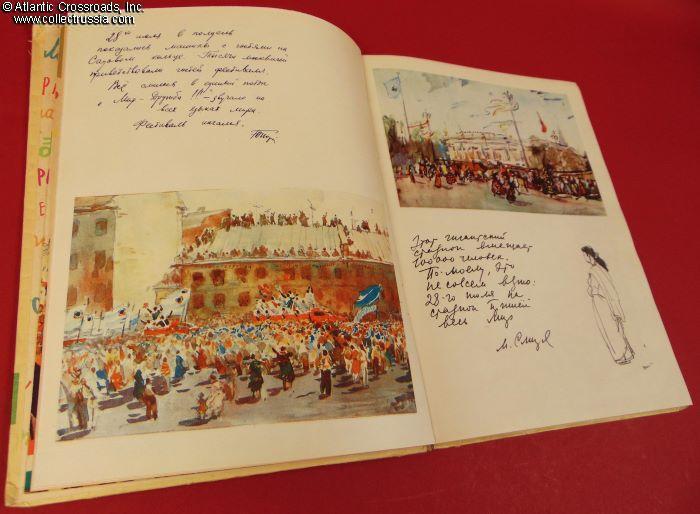 © Atlantic Crossroads, Inc.
www.collectrussia.com
28го июля в полдень
показались машины с гостями на
Садовом кольце. Тысячи москвичей
приветствовали гостей фестиваля.
Все слилось в единый поток
и "Мир - Дружба!!!" - звучало на
всех языках мира.
Фестиваль начался.
Этот гигантский
стадион вмещает
100000 человек.
По-моему, это
не совсем верно:
28-го июля на
стадион пришел
весь мир
М.